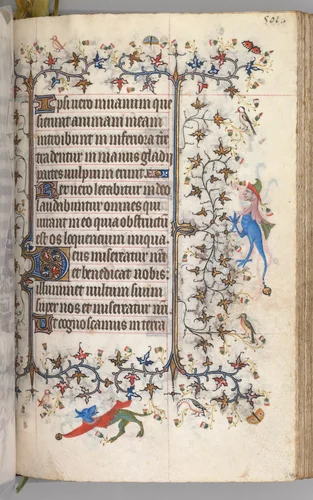 Ipsi vero in vanum que
sierunt animam meam
introibunt in inferiora ter
tradentur in manus gladii
partes vulpium erunt
Rex vero letabitur in deo
laudabuntur omnes qui
iurant in eo quia obstructū
est os loquencium iniqua
Deus misereatur nr̄i
et benedicat nobis
illuminet vultum suum
super nos et misereatur nr̄i
Ut cognoscamus in terra